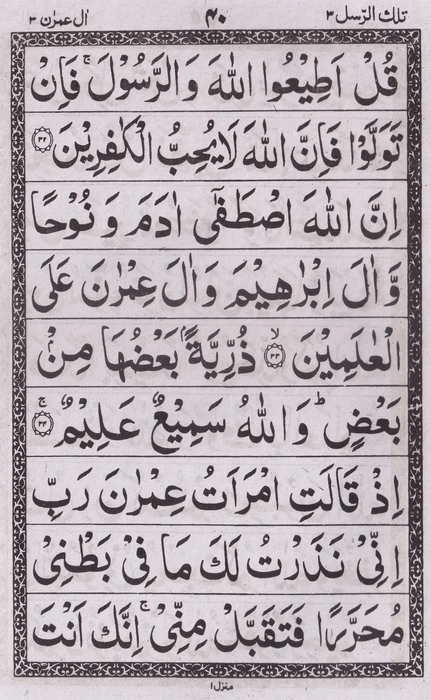 تلك الرسل ٣
٤٠
اٰل عمرٰن ٣
قُلْ اَطِيْعُوا اللّٰهَ وَ الرَّسُوْلَ ۚ فَاِنْ
تَوَلَّوْا فَاِنَّ اللّٰهَ لَا يُحِبُّ الْكٰفِرِيْنَ ﴿٣٢﴾
اِنَّ اللّٰهَ اصْطَفٰٓى اٰدَمَ وَ نُوْحًا
وَّ اٰلَ اِبْرٰهِيْمَ وَ اٰلَ عِمْرٰنَ عَلَى
الْعٰلَمِيْنَ ۙ﴿٣٣﴾ ذُرِّيَّةًۢ بَعْضُهَا مِنْۢ
بَعْضٍ ؕ وَ اللّٰهُ سَمِيْعٌ عَلِيْمٌ ۚ﴿٣٤﴾
اِذْ قَالَتِ امْرَاَتُ عِمْرٰنَ رَبِّ
اِنِّيْ نَذَرْتُ لَكَ مَا فِيْ بَطْنِيْ
مُحَرَّرًا فَتَقَبَّلْ مِنِّيْ ۚ اِنَّكَ اَنْتَ
منزل ١